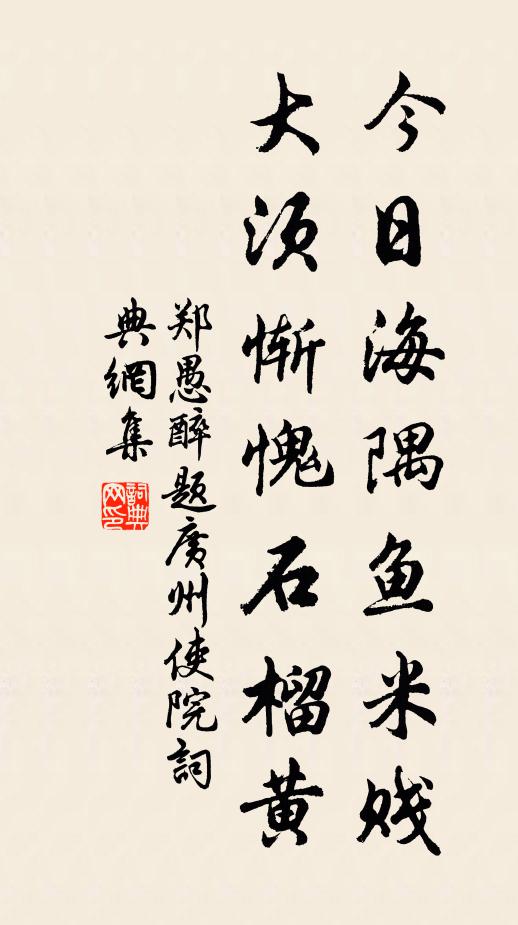 今日海隅鱼米贱
大须惭愧石榴黄
郑愚醉题廣州使院詞
典網集
詞典
网印